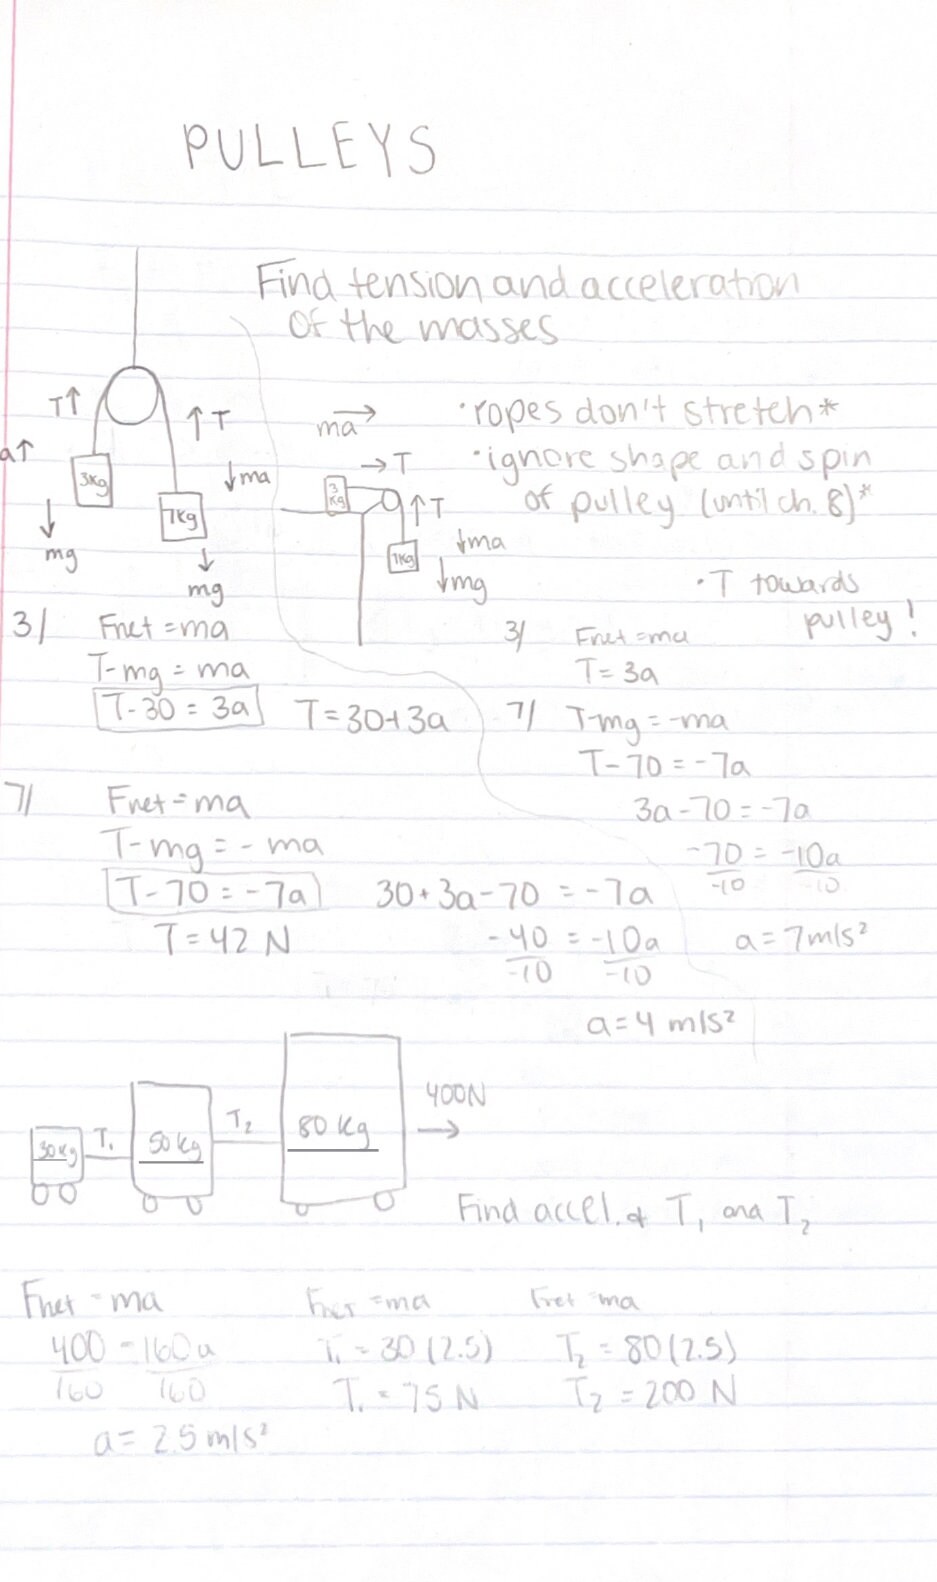 PULLEYS
Find tension and acceleration
of the masses
T↑
↑T
a↑
3kg
↓ma
7kg
↓
mg
↓
mg
ma →
→T
3 kg
↑T
7kg
↓ma
↓mg
·ropes don't stretch*
·ignore shape and spin
of pulley (until ch. 8)*
·T towards
pulley!
3/ Fnet = ma
T-mg = ma
T-30 = 3a T=30+3a
7/ Fnet = ma
T-mg = -ma
T-70 = -7a 30+3a-70 = -7a
T=42 N -40 = -10a
-10 -10
a=4 m/s²
3/ Fnet=ma
T=3a
7/ T-mg=-ma
T-70 = -7a
3a-70 = -7a
-70 = -10a
-10 -10
a=7m/s²
30kg T₁ 50kg T₂ 80kg 400N →
Find accel. & T₁ and T₂
Fnet = ma
400 = 160a
160 160
a= 2.5 m/s²
Fnet = ma
T₁ = 30(2.5)
T₁ = 75 N
Fnet = ma
T₂ = 80(2.5)
T₂ = 200 N